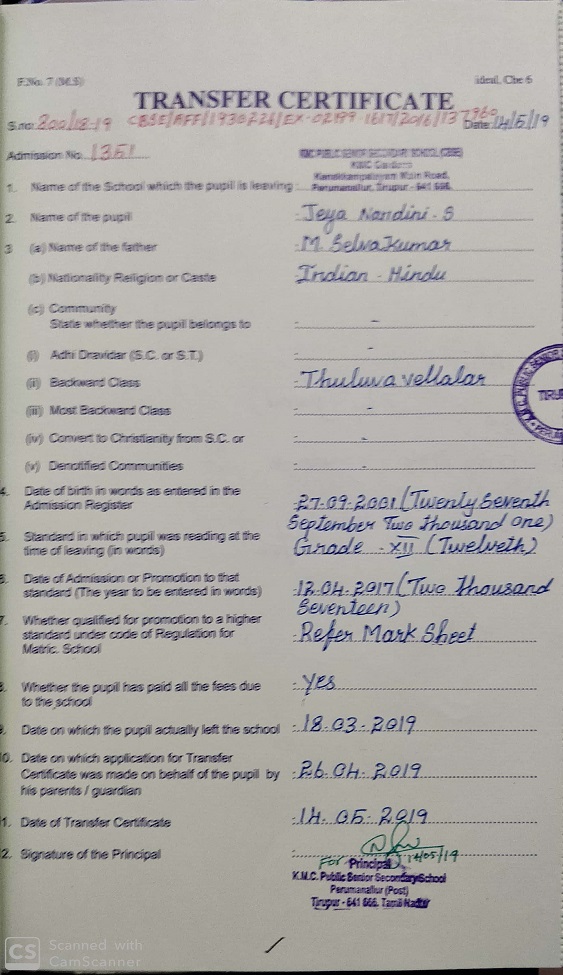 F.No. 7 (M.S)
ideal, Cbe 6
TRANSFER CERTIFICATE
S.no: 800/18-19 CBSE/AFF/1930226/EX-02199-1617/2016/137960 Date: 14/5/19
Admission No. 1351
KMC PUBLIC SENIOR SECONDARY SCHOOL (CBSE)
KMC Gardens
1. Name of the School which the pupil is leaving : Kanakkampalayam Main Road,
Perumanallur, Tirupur - 641 666.
2. Name of the pupil : Jeya Nandini. S
3 (a) Name of the father : M. Selvakumar
(b) Nationality Religion or Caste : Indian - Hindu
(c) Community
State whether the pupil belongs to : -
(i) Adhi Dravidar (S.C. or S.T.) : -
(ii) Backward Class : Thuluva vellalar
(iii) Most Backward Class : -
(iv) Convert to Christianity from S.C. or : -
(v) Denotified Communities : -
4. Date of birth in words as entered in the
Admission Register : 27.09.2001 (Twenty Seventh
September Two thousand one)
5. Standard in which pupil was reading at the
time of leaving (in words) : Grade - XII (Twelveth)
6. Date of Admission or Promotion to that
standard (The year to be entered in words) : 12.04.2017 (Two thousand
Seventeen)
7. Whether qualified for promotion to a higher
standard under code of Regulation for : Refer Mark Sheet
Matric. School
8. Whether the pupil has paid all the fees due : Yes
to the school
9. Date on which the pupil actually left the school : 18.03.2019
10. Date on which application for Transfer
Certificate was made on behalf of the pupil by : 26.04.2019
his parents / guardian
11. Date of Transfer Certificate : 14.05.2019
12. Signature of the Principal :
For Principal 14/05/19
K.M.C. Public Senior Secondary School
Perumanallur (Post)
Tirupur - 641 666. Tamil Nadu
K.M.C. PUBLIC SENIOR
TIRU
PERUM
CS Scanned with
CamScanner